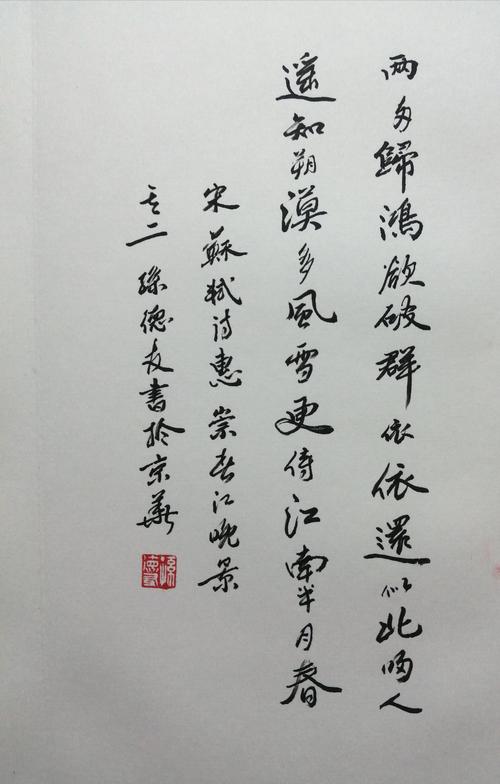 两两歸鴻欲破群依依還似北归人
遥知朔漠多風雪更待江南半月春
宋蘇軾诗惠崇春江晚景
其二 孫德友書於京華